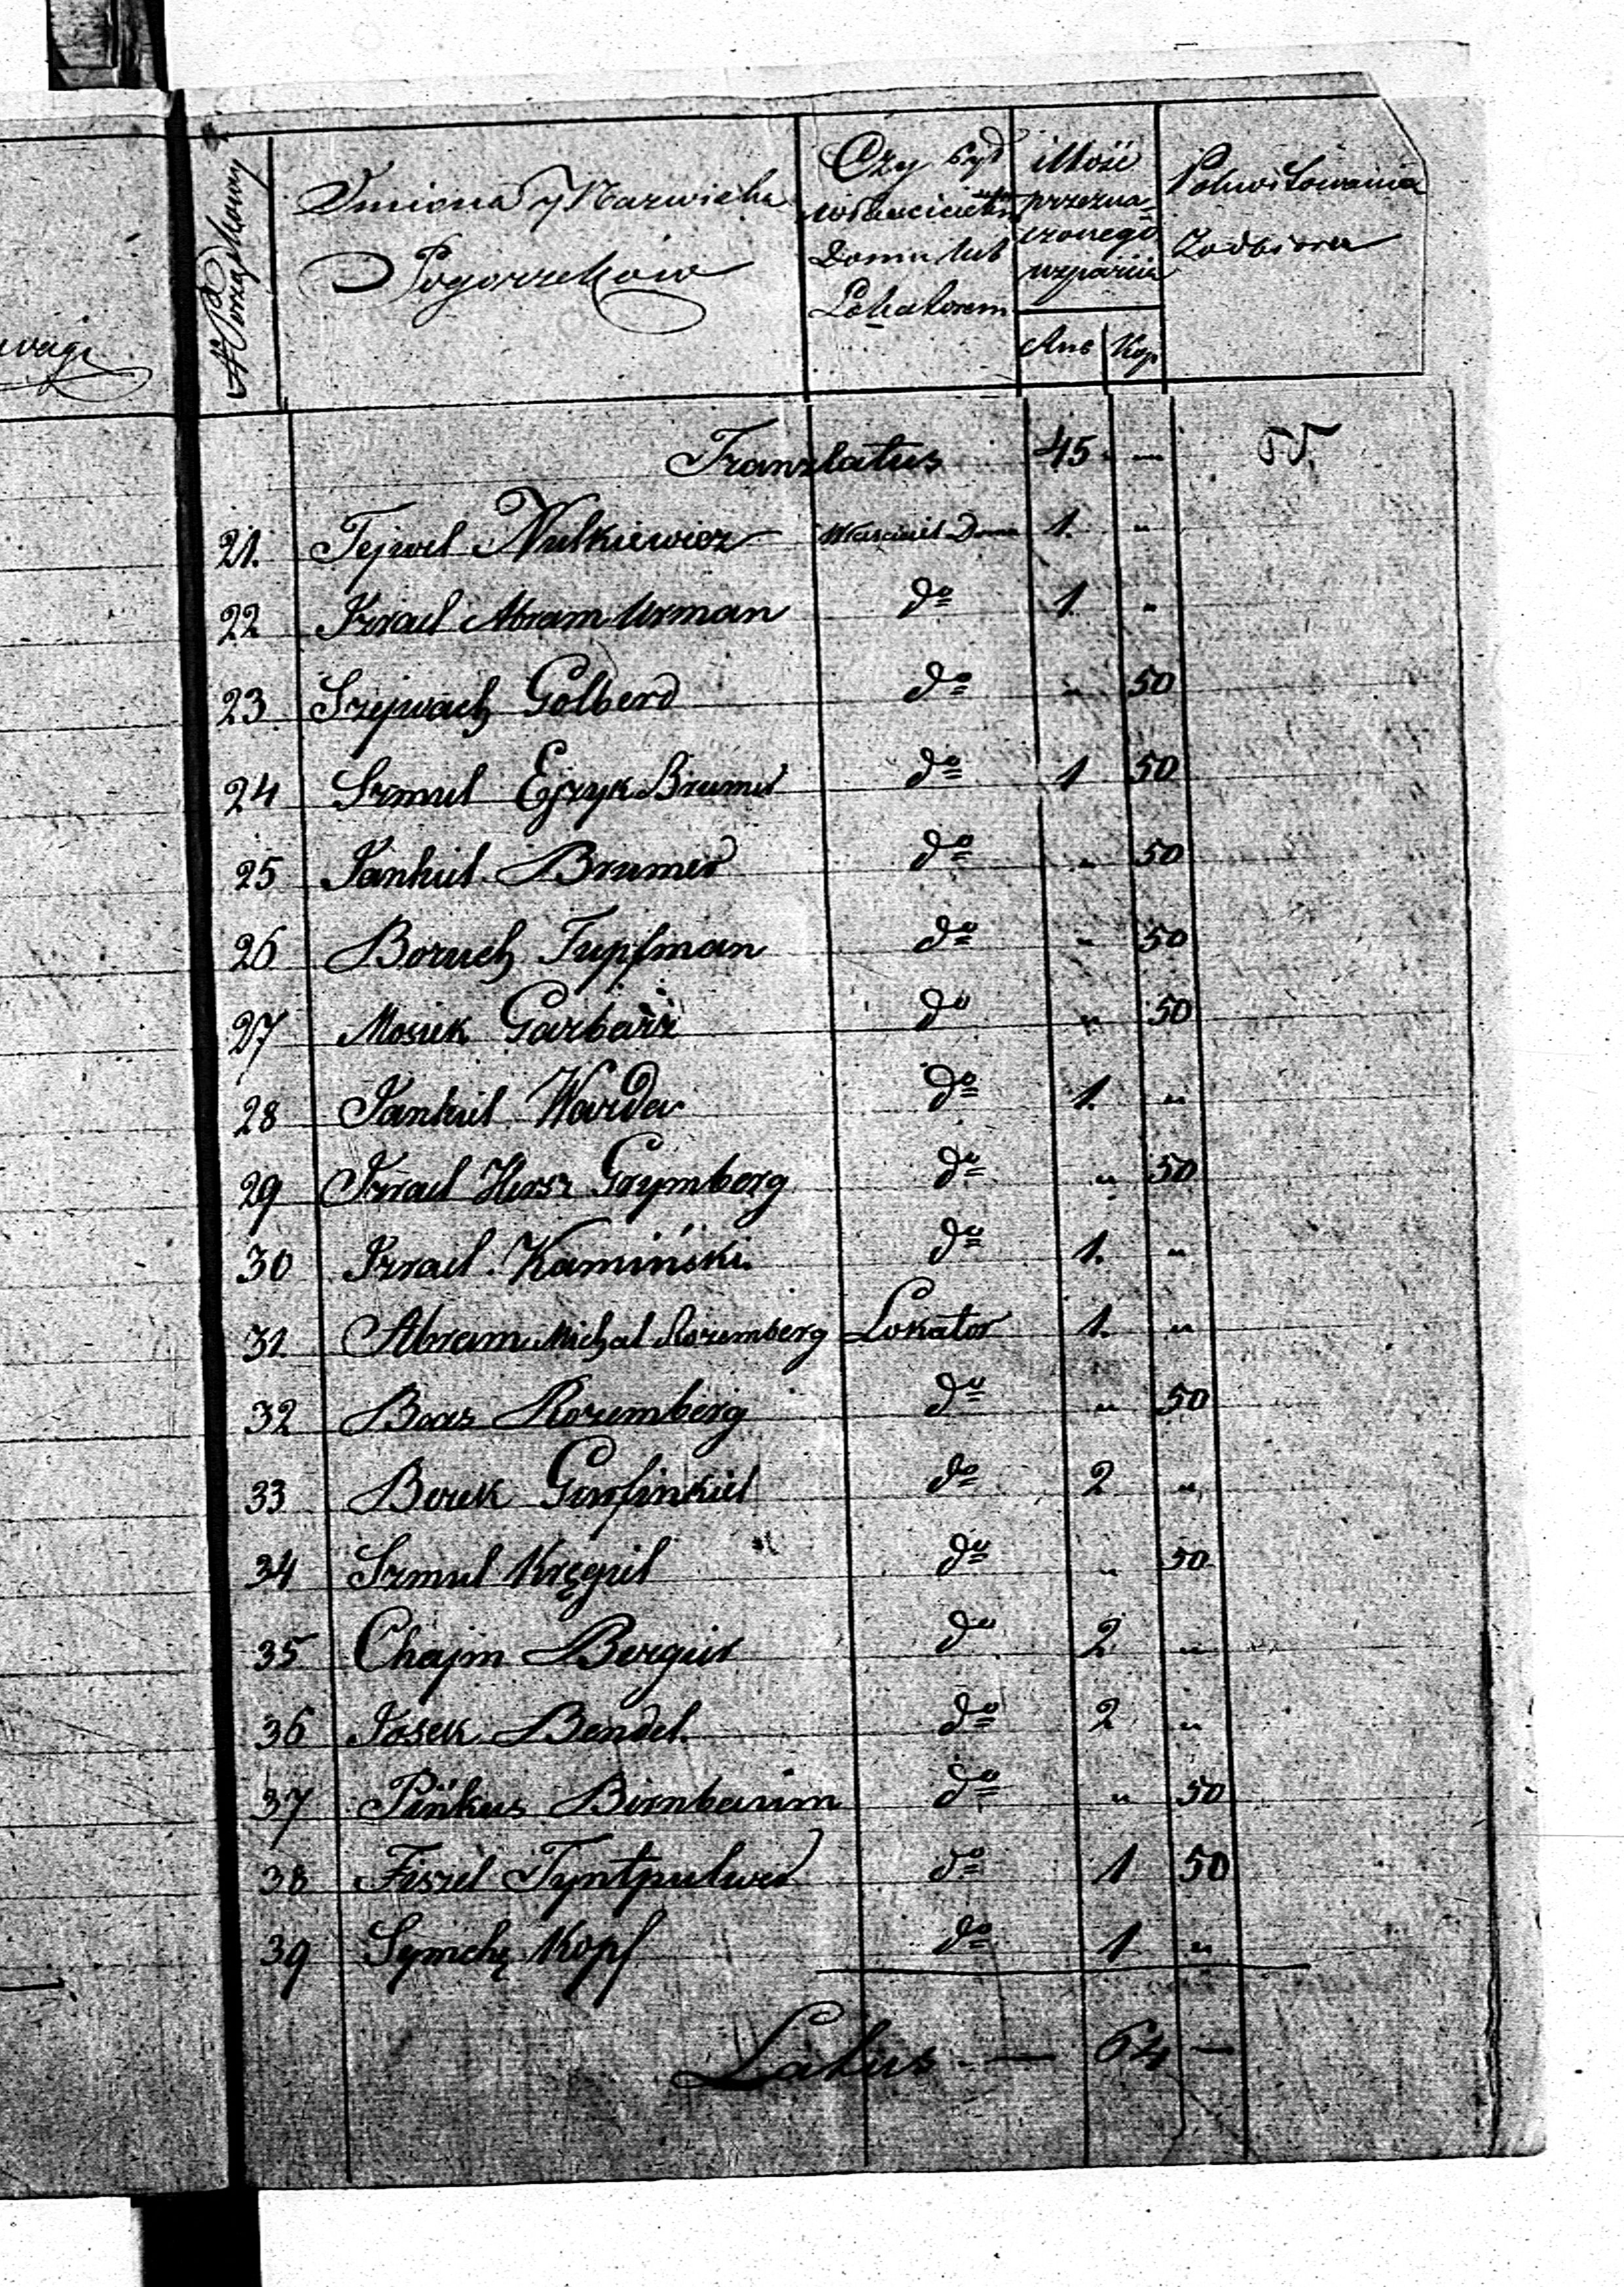 wagi
N Porządkowy
Imiona y Nazwiska
Pogorzelców
Czy był
właścicielem
Domu lub
Lokatorem
ilość
przezna-
czonego
wsparcia
Rus Kop
Pokwitowania
Zodbioru
Translatus 45 —
21. Tejwel Nutkiewicz Właściciel Domu 1. "
22 Izrael Abram Urman do 1 "
23 Szejwach Golberd do " 50
24 Szmul Ejzyk Brumer do 1 50
25 Jankiel Brumer do " 50
26 Boruch Tupfman do " 50
27 Mosiek Garbarz do " 50
28 Jankiel Warda do 1. "
29 Izrael Hersz Grymberg do " 50
30 Izrael Kamiński do 1. "
31 Abram Michal Rozemberg Lokator 1. "
32 Boas Rozemberg do " 50
33 Berek Ginfinkiel do 2 "
34 Szmul Kręgiel do " 50
35 Chajm Bergier do 2 "
36 Josek Bendel do 2 "
37 Pinkus Birnbaum do " 50
38 Fiszel Tyntpulwer do 1 50
39 Symchę Kopf do 1 "
Latus — 64 —